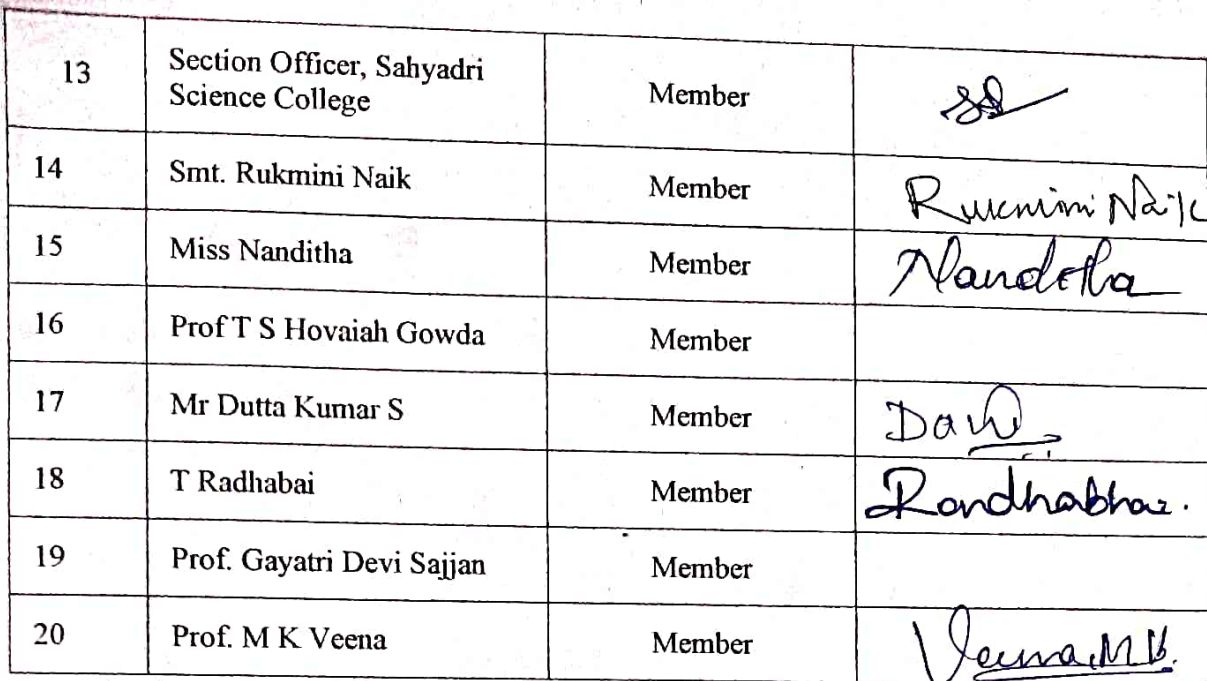 13 Section Officer, Sahyadri
Science College Member
14 Smt. Rukmini Naik Member Rukmini Naik
15 Miss Nanditha Member Nanditha
16 Prof T S Hovaiah Gowda Member
17 Mr Dutta Kumar S Member
18 T Radhabai Member
19 Prof. Gayatri Devi Sajjan Member
20 Prof. M K Veena Member Veena.M K.